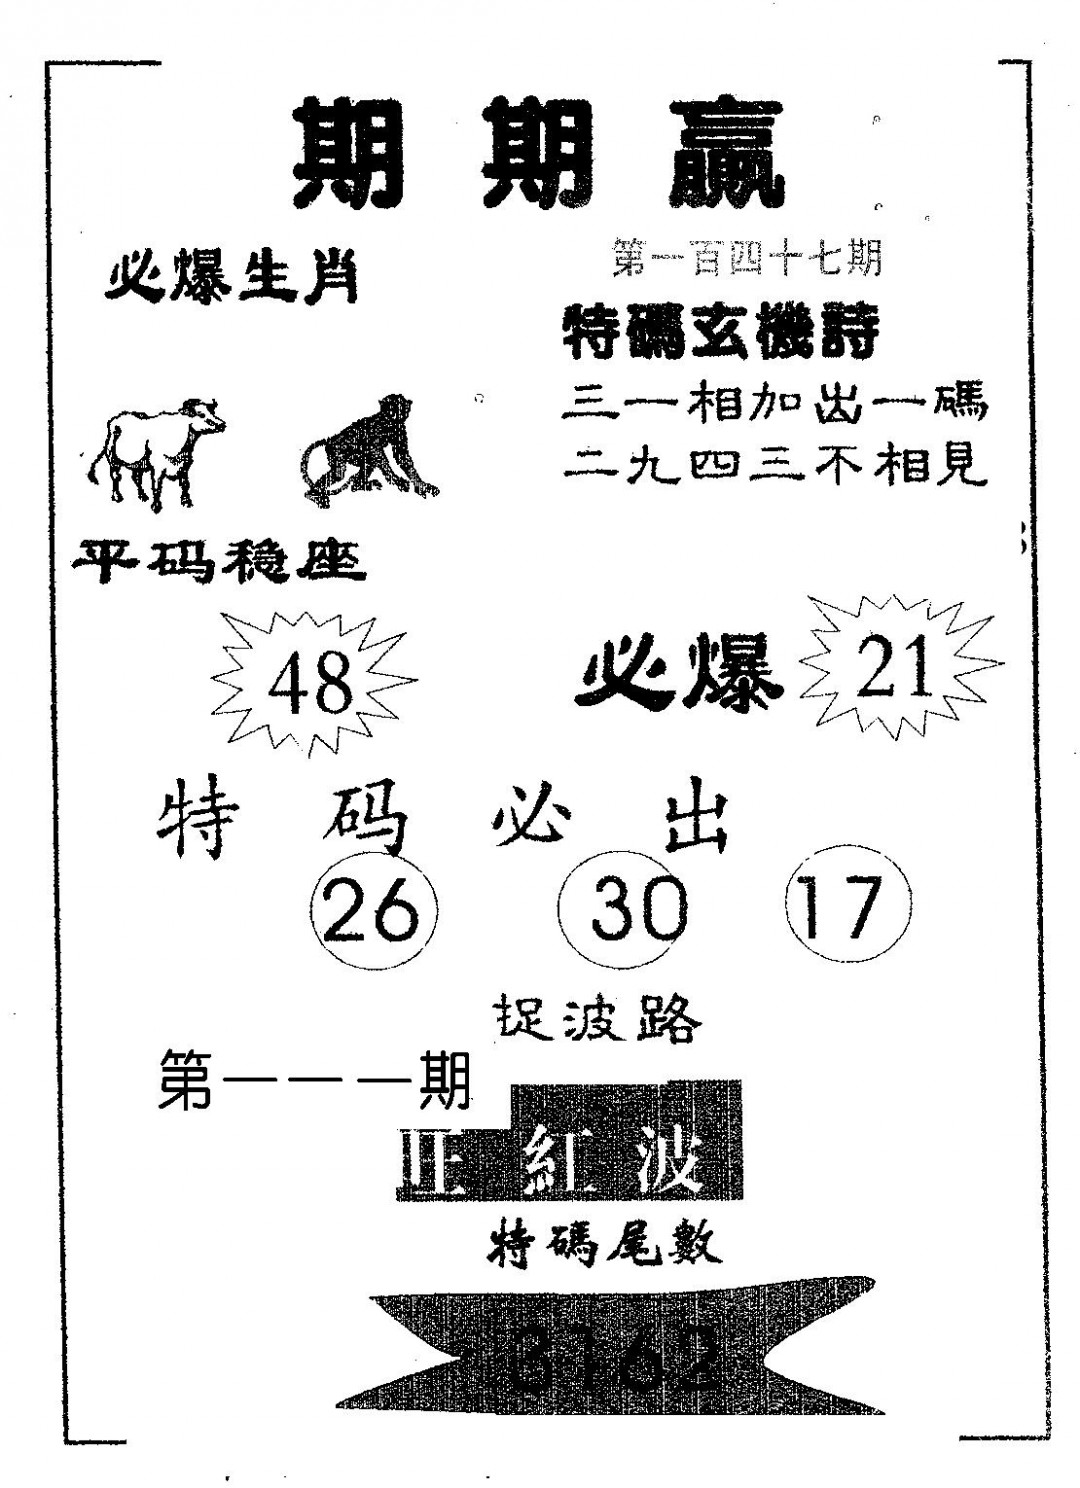 期期贏
必爆生肖
第一百四十七期
特碼玄機詩
三一相加出一碼
二九四三不相見
平码稳座
48
必爆 21
特码必出
26 30 17
捉波路
第一一一期
旺紅波
特碼尾數
3162